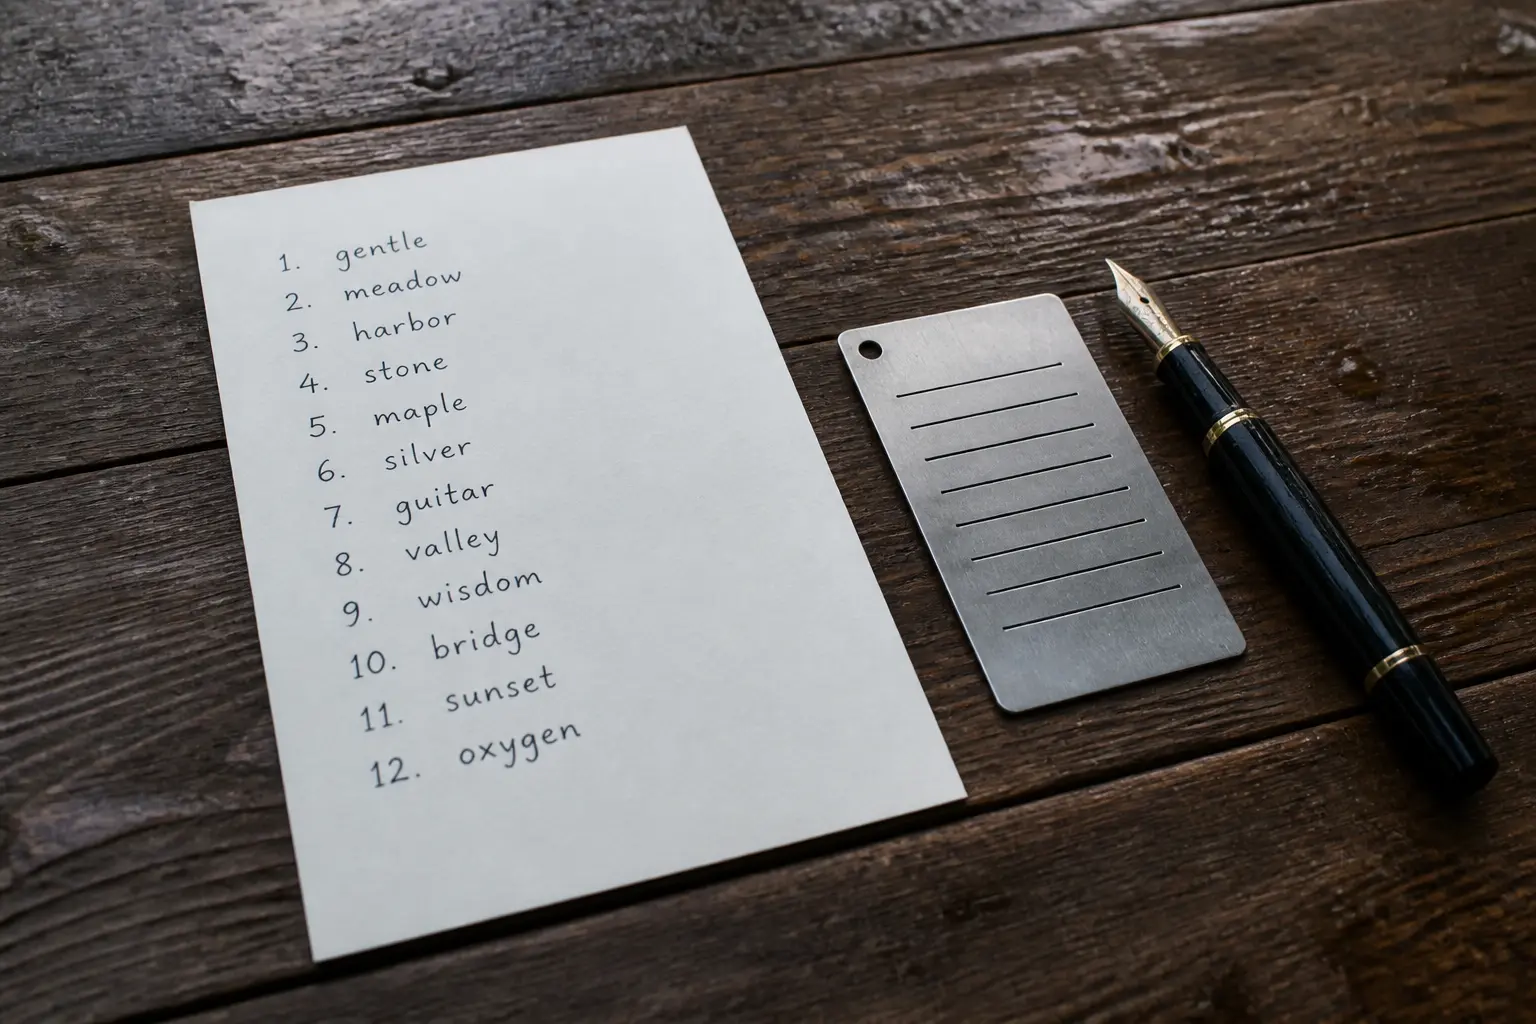 1. gentle
2. meadow
3. harbor
4. stone
5. maple
6. silver
7. guitar
8. valley
9. wisdom
10. bridge
11. sunset
12. oxygen